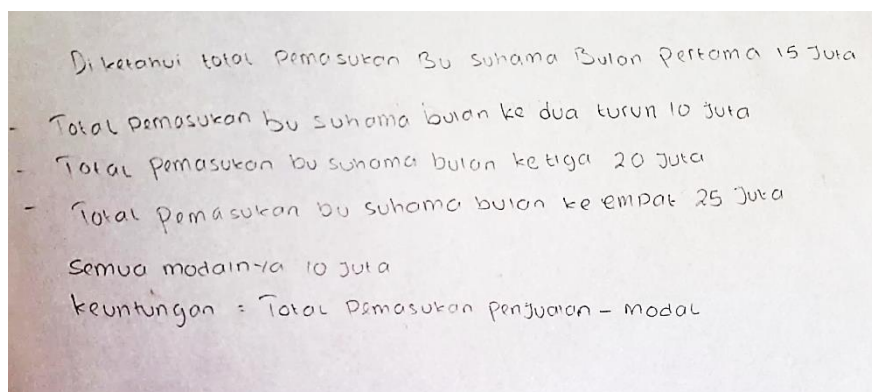 Diketahui total Pemasukan Bu suhama Bulan Pertama 15 Juta
- Total Pemasukan bu suhama bulan ke dua turun 10 juta
- Total pemasukan bu suhama bulan ke tiga 20 Juta
- Total Pemasukan bu suhama bulan ke empat 25 Juta
Semua modalnya 10 Juta
keuntungan = Total Pemasukan Penjualan - Modal